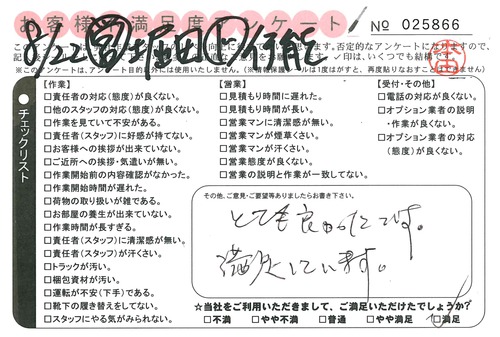 お客様満足度アンケート
No 025866
8/22
※このアンケートは、アンケート目的以外には使用いたしません。（※情報保護シールは1度はがすと、再度貼りなおすことはできません）
チェックリスト
【作業】
□責任者の対応(態度)が良くない。
□他のスタッフの対応(態度)が良くない。
□作業を見ていて不安がある。
□責任者(スタッフ)に好感が持てない。
□お客様への挨拶が出来ていない。
□ご近所への挨拶・気遣いが無い。
□作業開始前の内容確認がなかった。
□作業開始時間が遅れた。
□荷物の取り扱いが雑である。
□お部屋の養生が出来ていない。
□作業時間が長すぎる。
□責任者(スタッフ)に清潔感が無い。
□責任者(スタッフ)が汗くさい。
□トラックが汚い。
□梱包資材が汚い。
□運転が不安(下手)である。
□靴下の履き替えをしてない。
□スタッフにやる気がみられない。
【営業】
□見積もり時間に遅れた。
□見積もり時間が長い。
□営業マンに清潔感が無い。
□営業マンが煙草くさい。
□営業マンが汗くさい。
□営業態度が良くない。
□営業の説明と作業が一致してない。
【受付・その他】
□電話の対応が良くない。
□オプション業者の説明
・作業が良くない。
□オプション業者の対応
(態度)が良くない。
その他、ご意見・ご要望等ありましたらお書き下さい。
とても良かったです。
満足しています。
☆当社をご利用いただきまして、ご満足いただけたでしょうか?
□不満 □やや不満 □普通 □やや満足 □満足